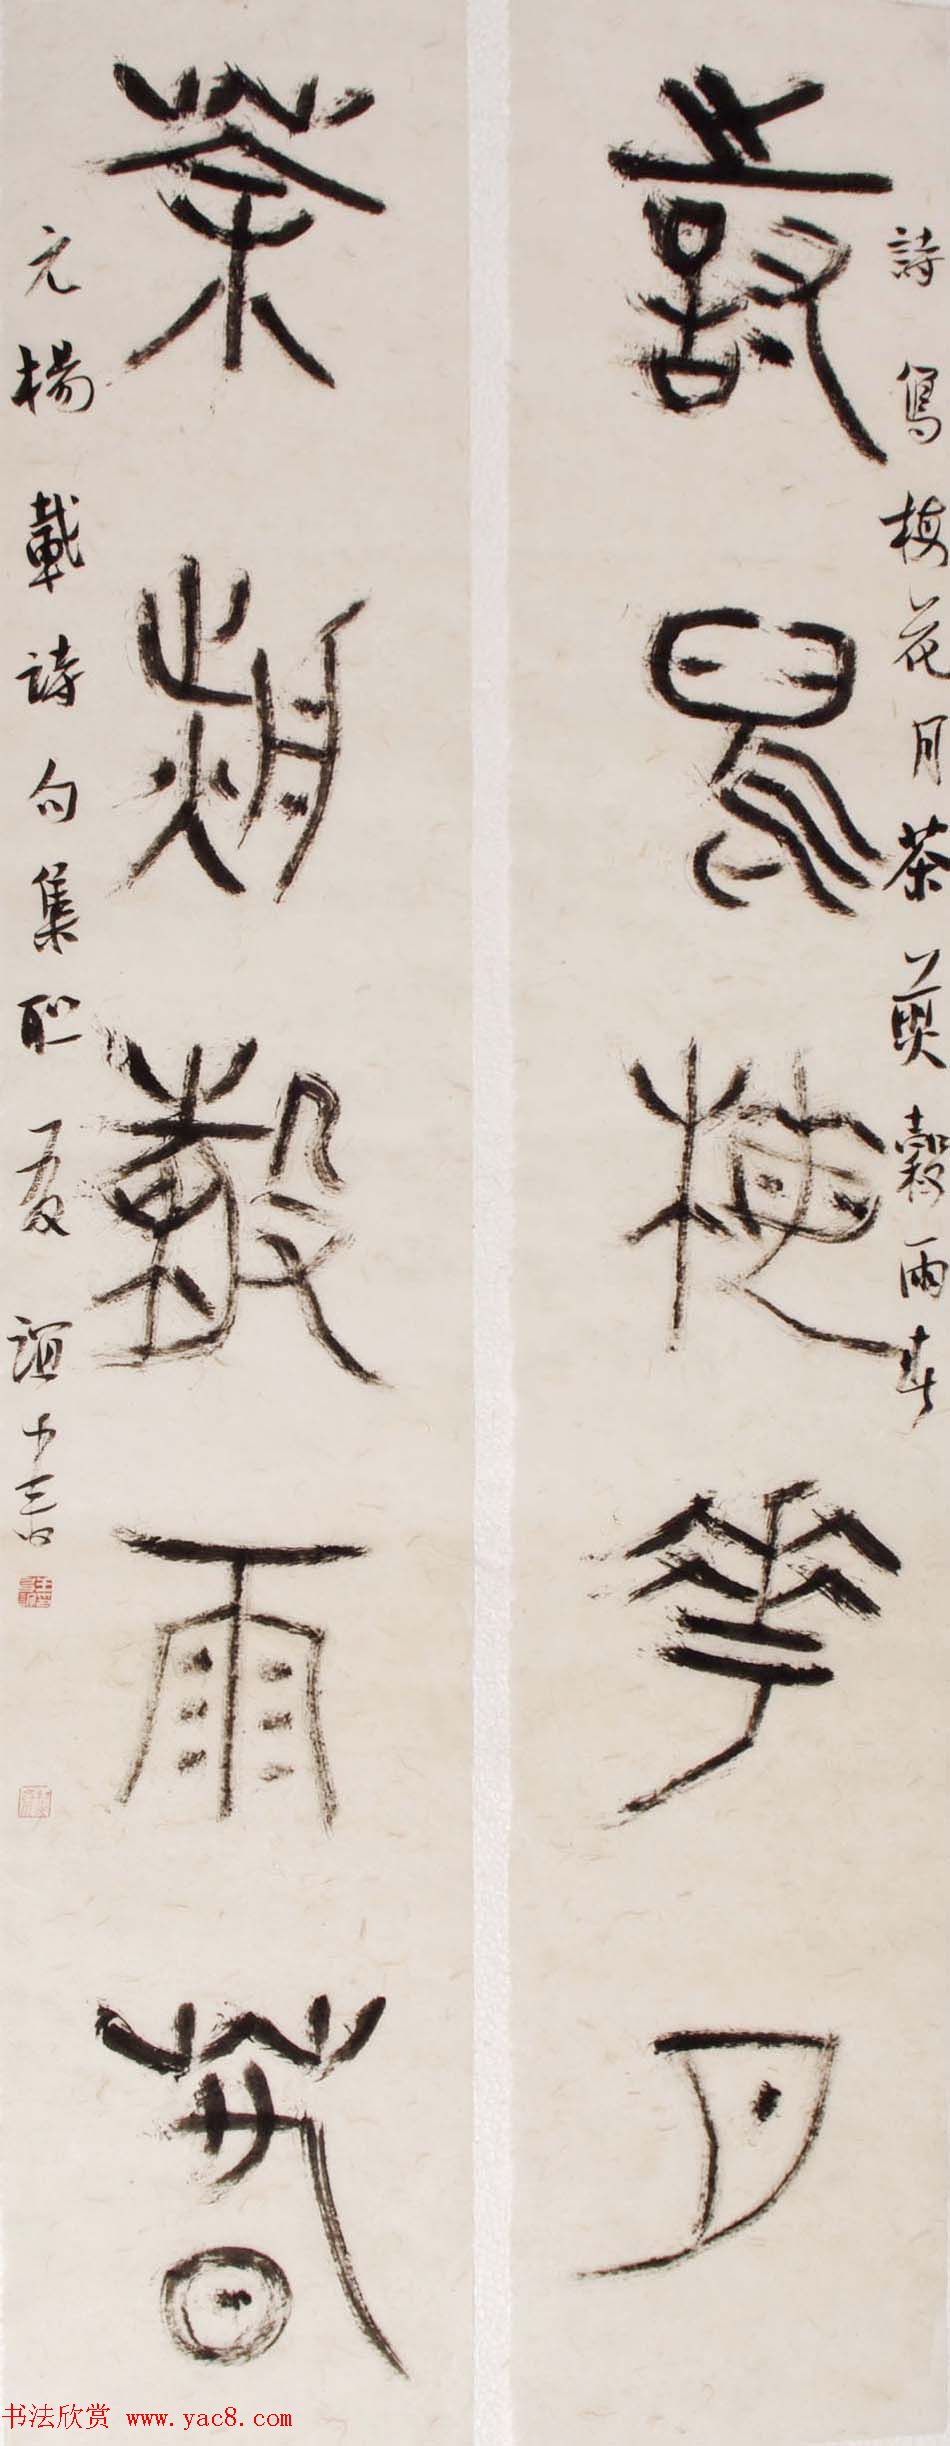 詩寫梅花月茶煎穀雨春
詩寫梅花月
茶煎穀雨春
元楊載詩句集聯
书法欣赏 www.yac8.com